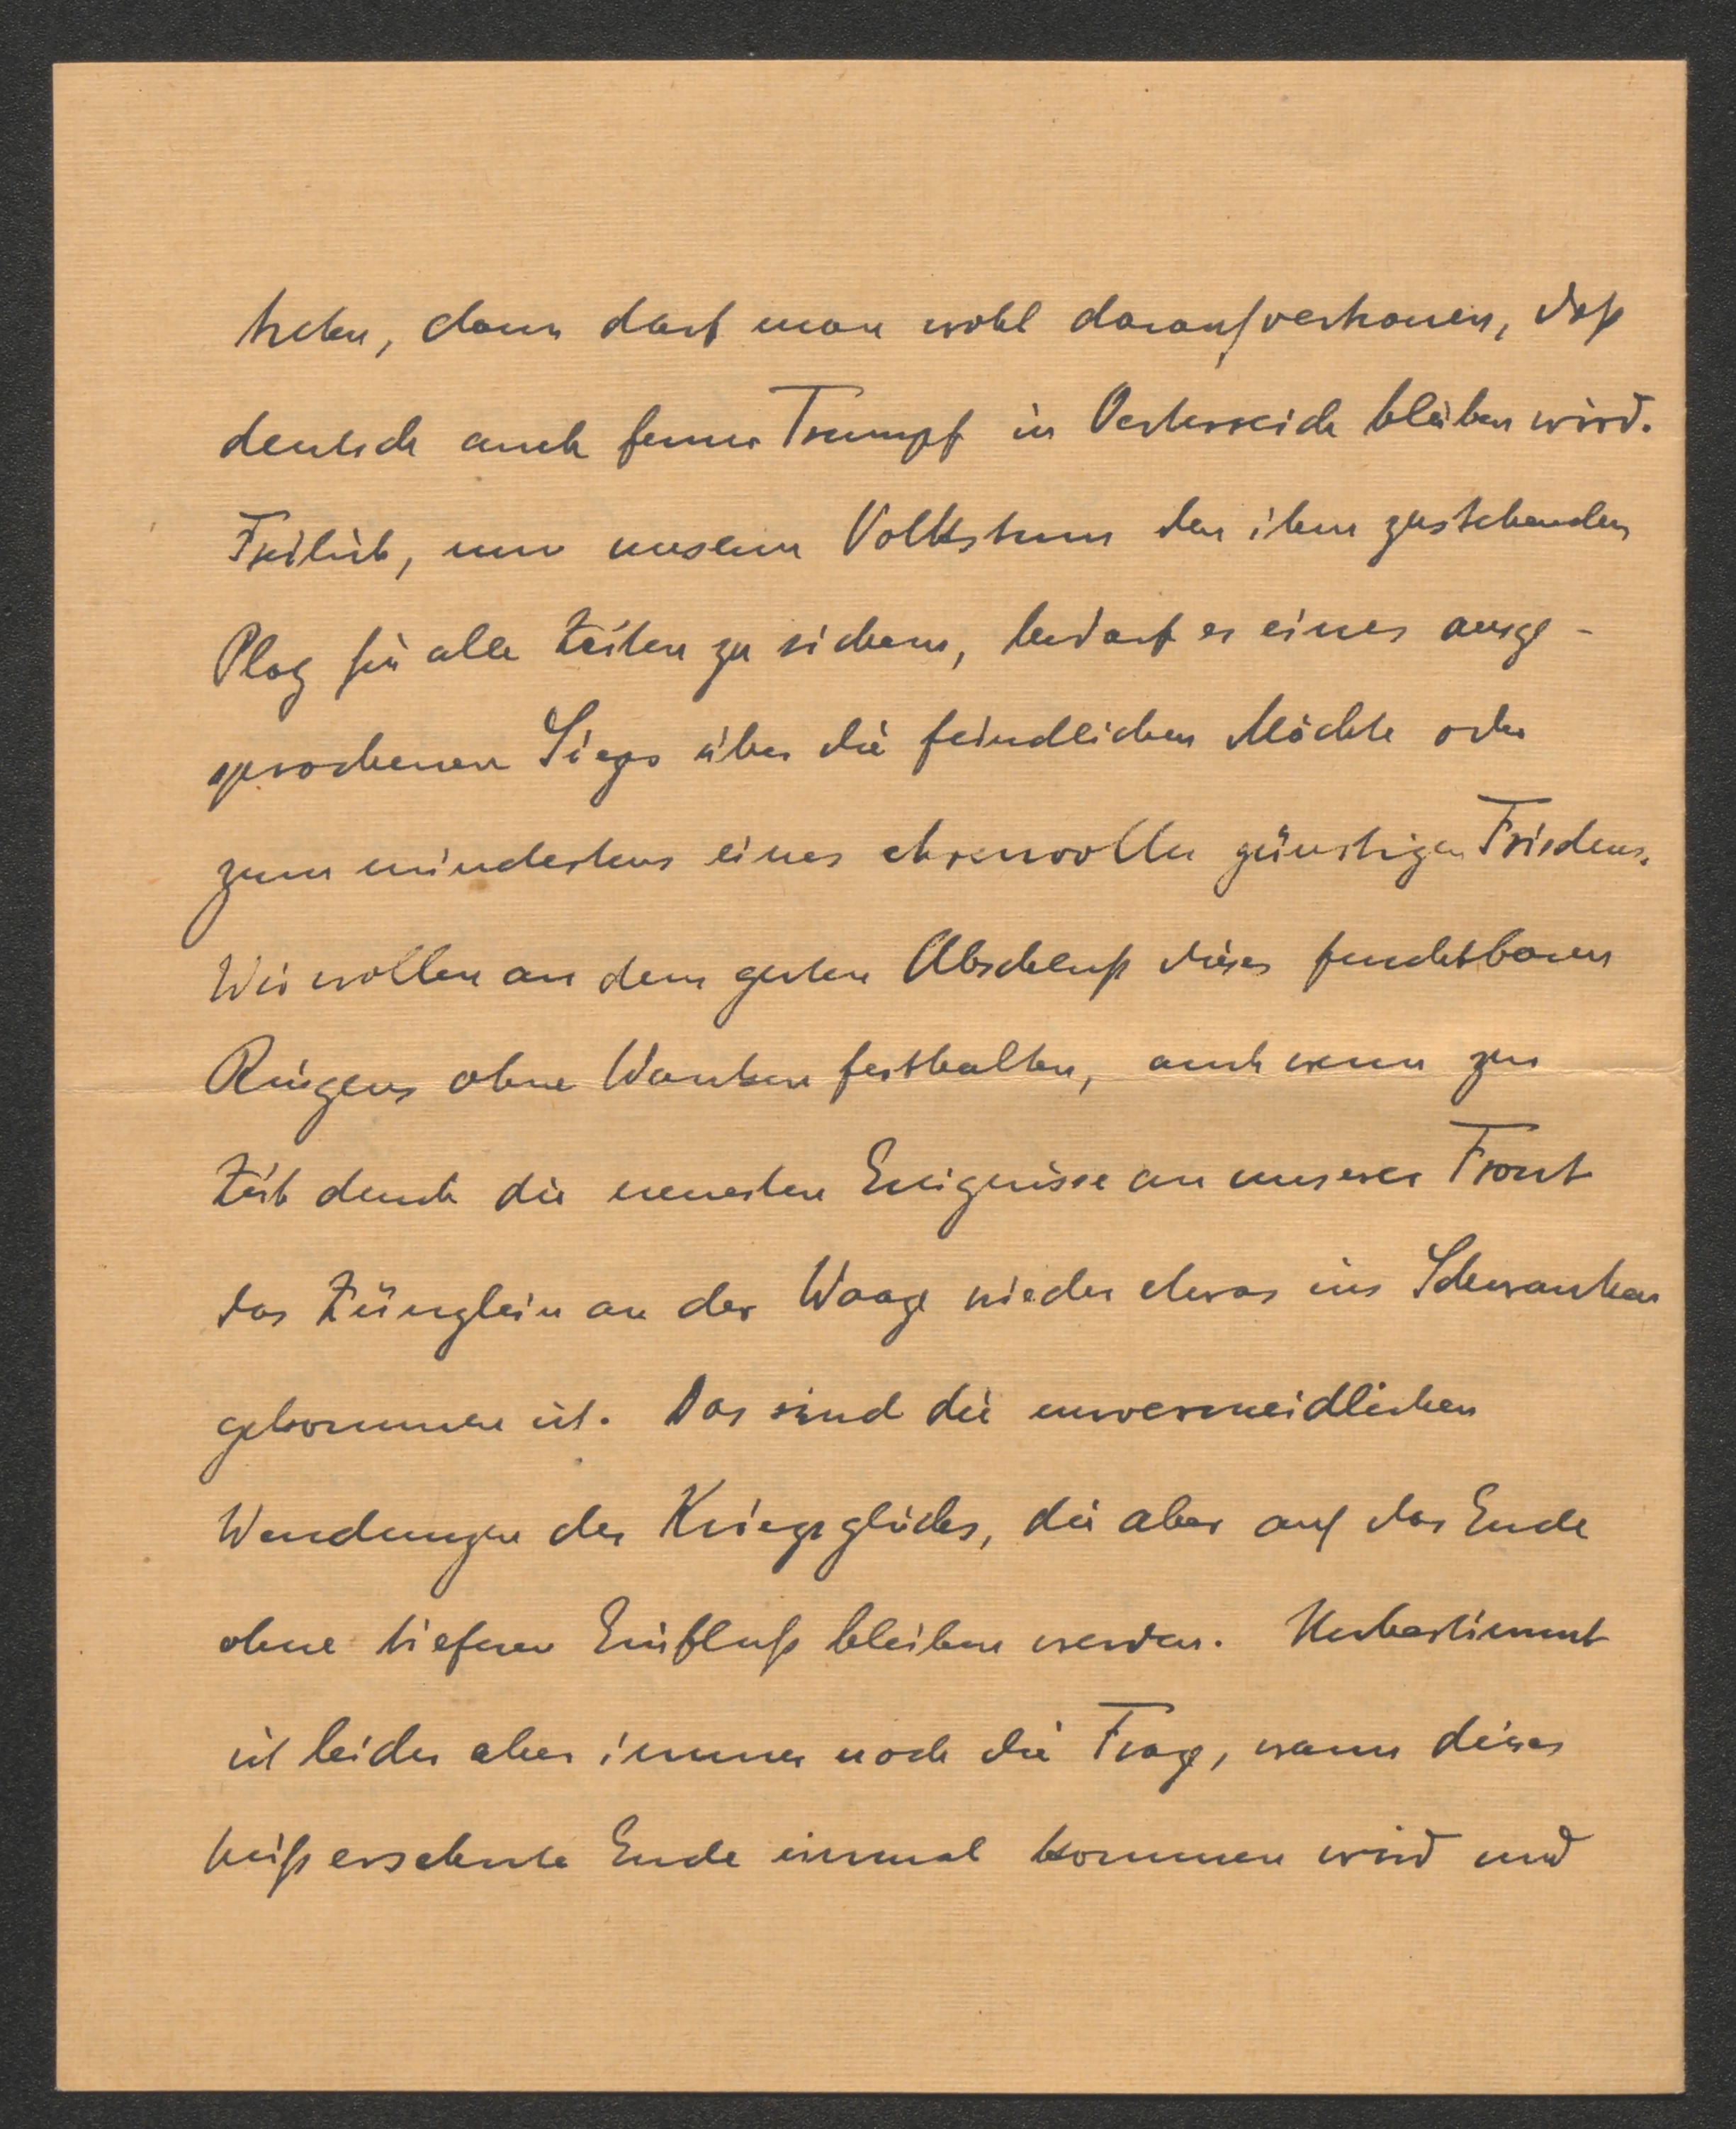 treten, dann darf man wohl darauf vertrauen, daß
deutsch auch ferner Trumpf in Oesterreich bleiben wird.
Freilich, um unserm Volkstum den ihm zustehenden
Platz für alle Zeiten zu sichern, bedarf es eines ausge-
sprochenen Siegs über die feindlichen Mächte oder
zum mindestens eines ehrenvollen günstigen Friedens.
Wir wollen an dem guten Abschluß dieses furchtbaren
Ringens ohne Wanken festhalten, auch wenn zur
Zeit durch die neuesten Ereignisse an unserer Front
das Zünglein an der Waage wieder etwas ins Schwanken
gekommen ist. Das sind die unvermeidlichen
Wendungen des Kriegsglückes, die aber auf das Ende
ohne tieferen Einfluß bleiben werden. Unbestimmt
ist leider aber immer noch die Frage, wann dieses
heißersehnte Ende einmal kommen wird und